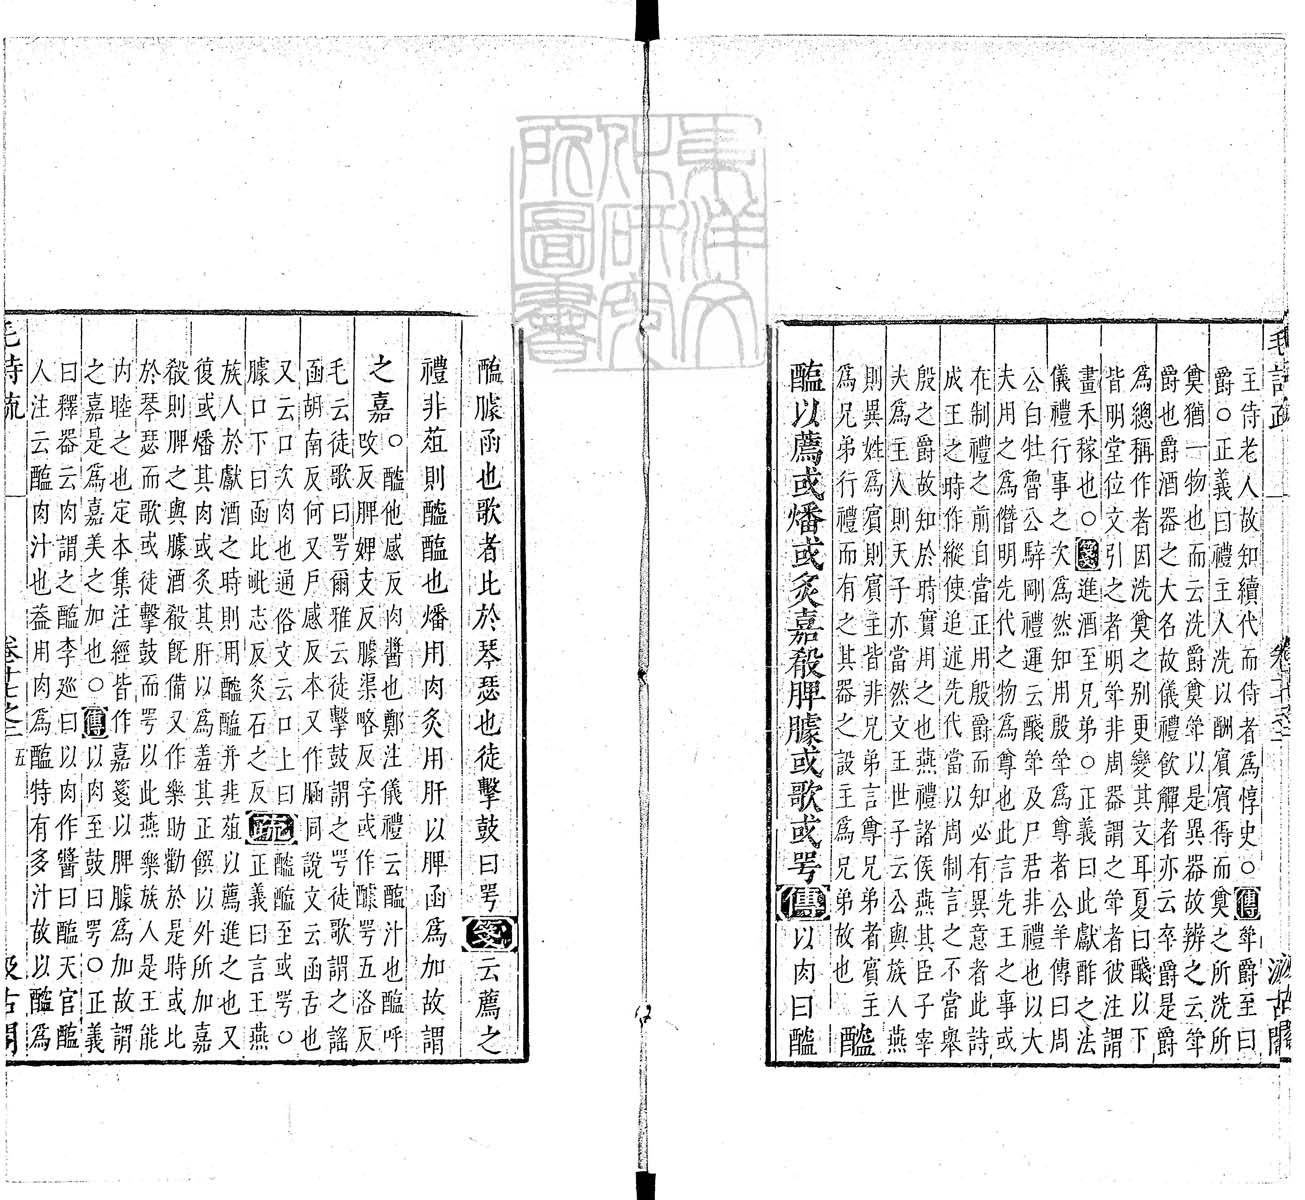 主侍老人故知續代而侍者爲惇史○傳斝爵至曰
爵○正義曰禮主人洗以酬賓賓得而奠之所洗所
奠猶一物也而云洗爵奠斝以是異器故辨之云斝
爵也爵酒器之大名故儀禮飲觶者亦云卒爵是爵
爲總稱作者因洗奠之別更變其文耳夏曰醆以下
皆明堂位文引之者明斝非周器謂之斝者彼注謂
畫禾稼也○箋進酒至兄弟○正義曰此獻酢之法
儀禮行事之次爲然知用殷斝爲尊者公羊傳曰周
公白牡魯公騂剛禮運云醆斝及尸君非禮也以大
夫用之爲僭明先代之物爲尊也此言先王之事或
在制禮之前自當正用殷爵而知必有異意者此詩
成王之時作縱使追述先代當以周制言之不當舉
殷之爵故知於時實用之也燕禮諸侯燕其臣子宰
夫爲主人則天子亦當然文王世子云公與族人燕
則異姓爲賓則賓主皆非兄弟言尊兄弟者賓主
爲兄弟行禮而有之其器之設主爲兄弟故也　醓
醢以薦或燔或炙嘉殽脾臄或歌或咢傳以肉曰醓
醢臄函也歌者比於琴瑟也徒擊鼓曰咢箋云薦之
禮非菹則醓醢也燔用肉炙用肝以脾函爲加故謂
之嘉○醓他感反肉醬也鄭注儀禮云醓汁也醢呼
攺反脾婢支反臄渠略反字或作醵咢五洛反
毛云徒歌曰咢爾雅云徒擊鼓謂之咢徒歌謂之謠
函胡南反何又戶感反本又作腼同說文云函舌也
又云口次肉也通俗文云口上曰
臄口下曰函比毗志反炙石之反疏醓醢至或咢○
正義曰言王燕
族人於獻酒之時則用醓醢幷韭菹以薦進之也又
復或燔其肉或炙其肝以爲羞其正饌以外所加嘉
殽則脾之與臄酒殽旣備又作樂助勸於是時或比
於琴瑟而歌或徒擊鼓而咢以此燕樂族人是王能
内睦之也定本集注經皆作嘉箋以脾臄爲加故謂
之嘉是爲嘉美之加也○傳以肉至鼓曰咢○正義
曰釋器云肉謂之醢李巡曰以肉作醬曰醢天官醢
人注云醓肉汁也蓋用肉爲醢特有多汁故以醓爲
毛詩疏
卷十七之二
五
汲古閣